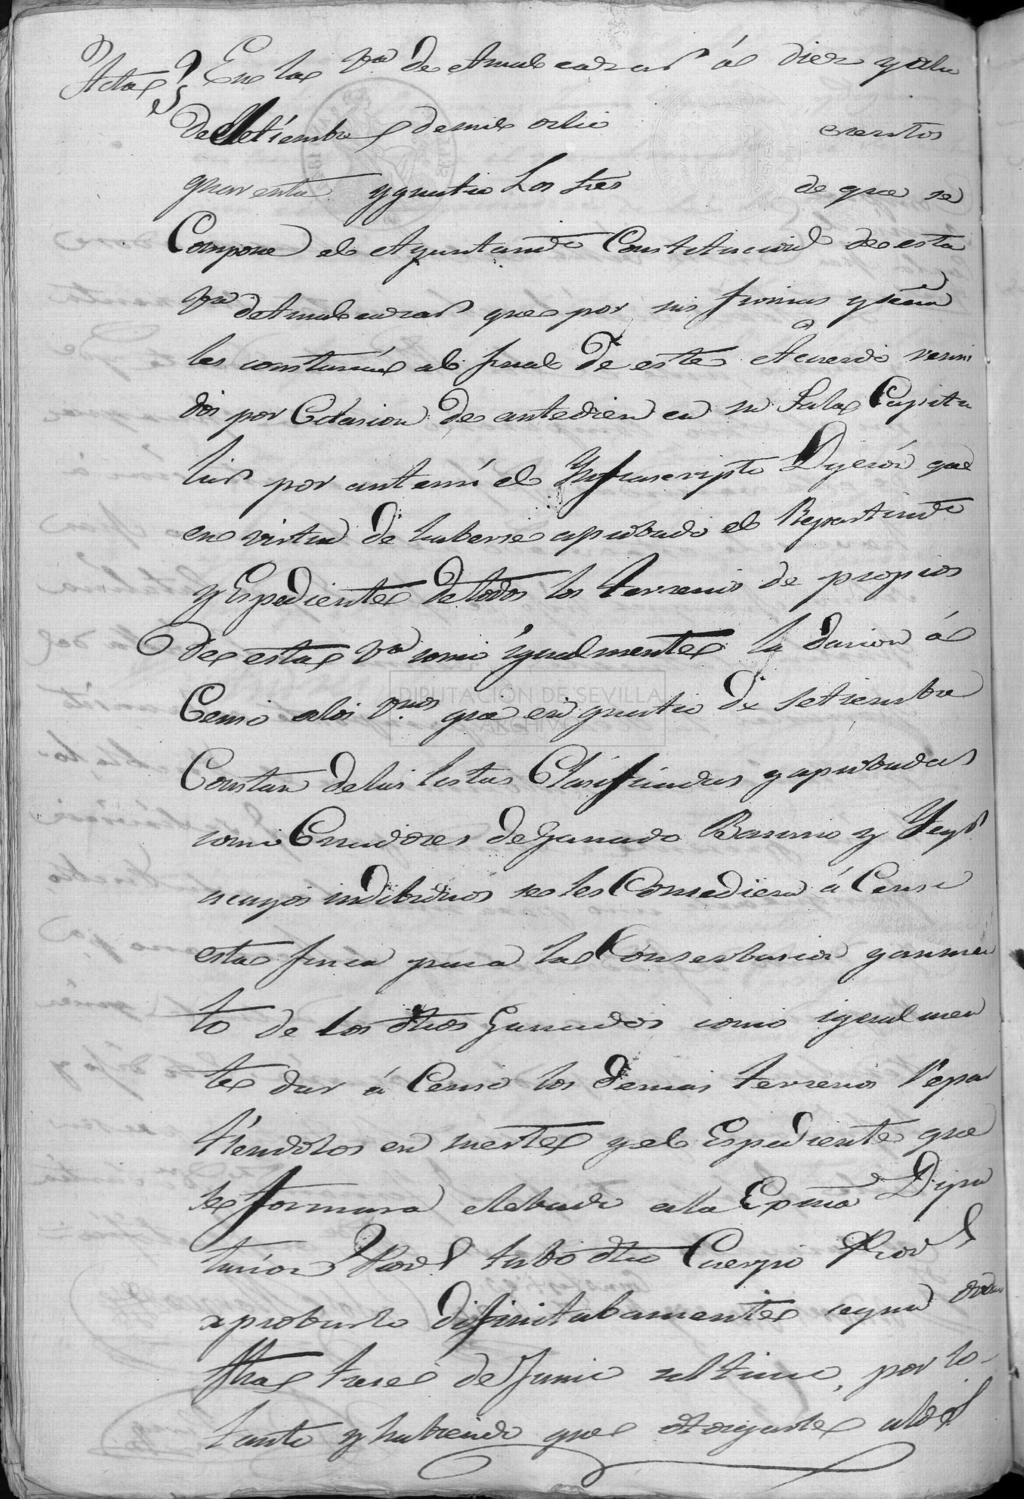 Acta
En la Va de Aznalcazar á diez y ocho
de Setiembre de mil ocho cientos
quarenta y quatro Los Sres de que se
Compone el Ayuntamto Constitucional de esta
Va de Aznalcazar que por sus firmas y señal
les constarán al final de este Acuerdo reuni
dos por Citacion de antedien en su Sala Capitu
lar por ante mi el Ynfrascripto Dijerón que
en virtud de haberse aprobado el Repartimto
y Espediente de todos los terrenos de propios
de esta Va como igualmente la dacion á
Censo a los Vnos que en quatro de Setiembre
DIPUTACIÓN DE SEVILLA
ARCHIVO
Constan de las listas Clasificadas y aprobadas
como Criadores de Ganado Bacuno y Yeguar
a cuyos indibiduos se les Consediera á Censo
esta finca para la Conserbacion y aumen
to de los dhos Ganados como igualmen
te dar á Censo los demas terrenos Repar
tiendolos en suerte y el Espediente que
se formara elebado a la Exma Dipu
tacion Provl tubo dho Cuerpo Provl
aprobarlo difinitibamente segun orden
fha trese de Junio ultimo, por lo
tanto y habiendo que otorgarse